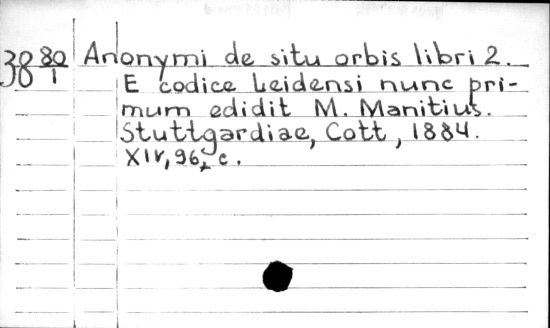 38 80/1 Anonymi de situ orbis libri 2.
E codice Leidensi nunc pri-
mum edidit M. Manitius.
Stuttgardiae, Cott, 1884.
XIV, 96, c.